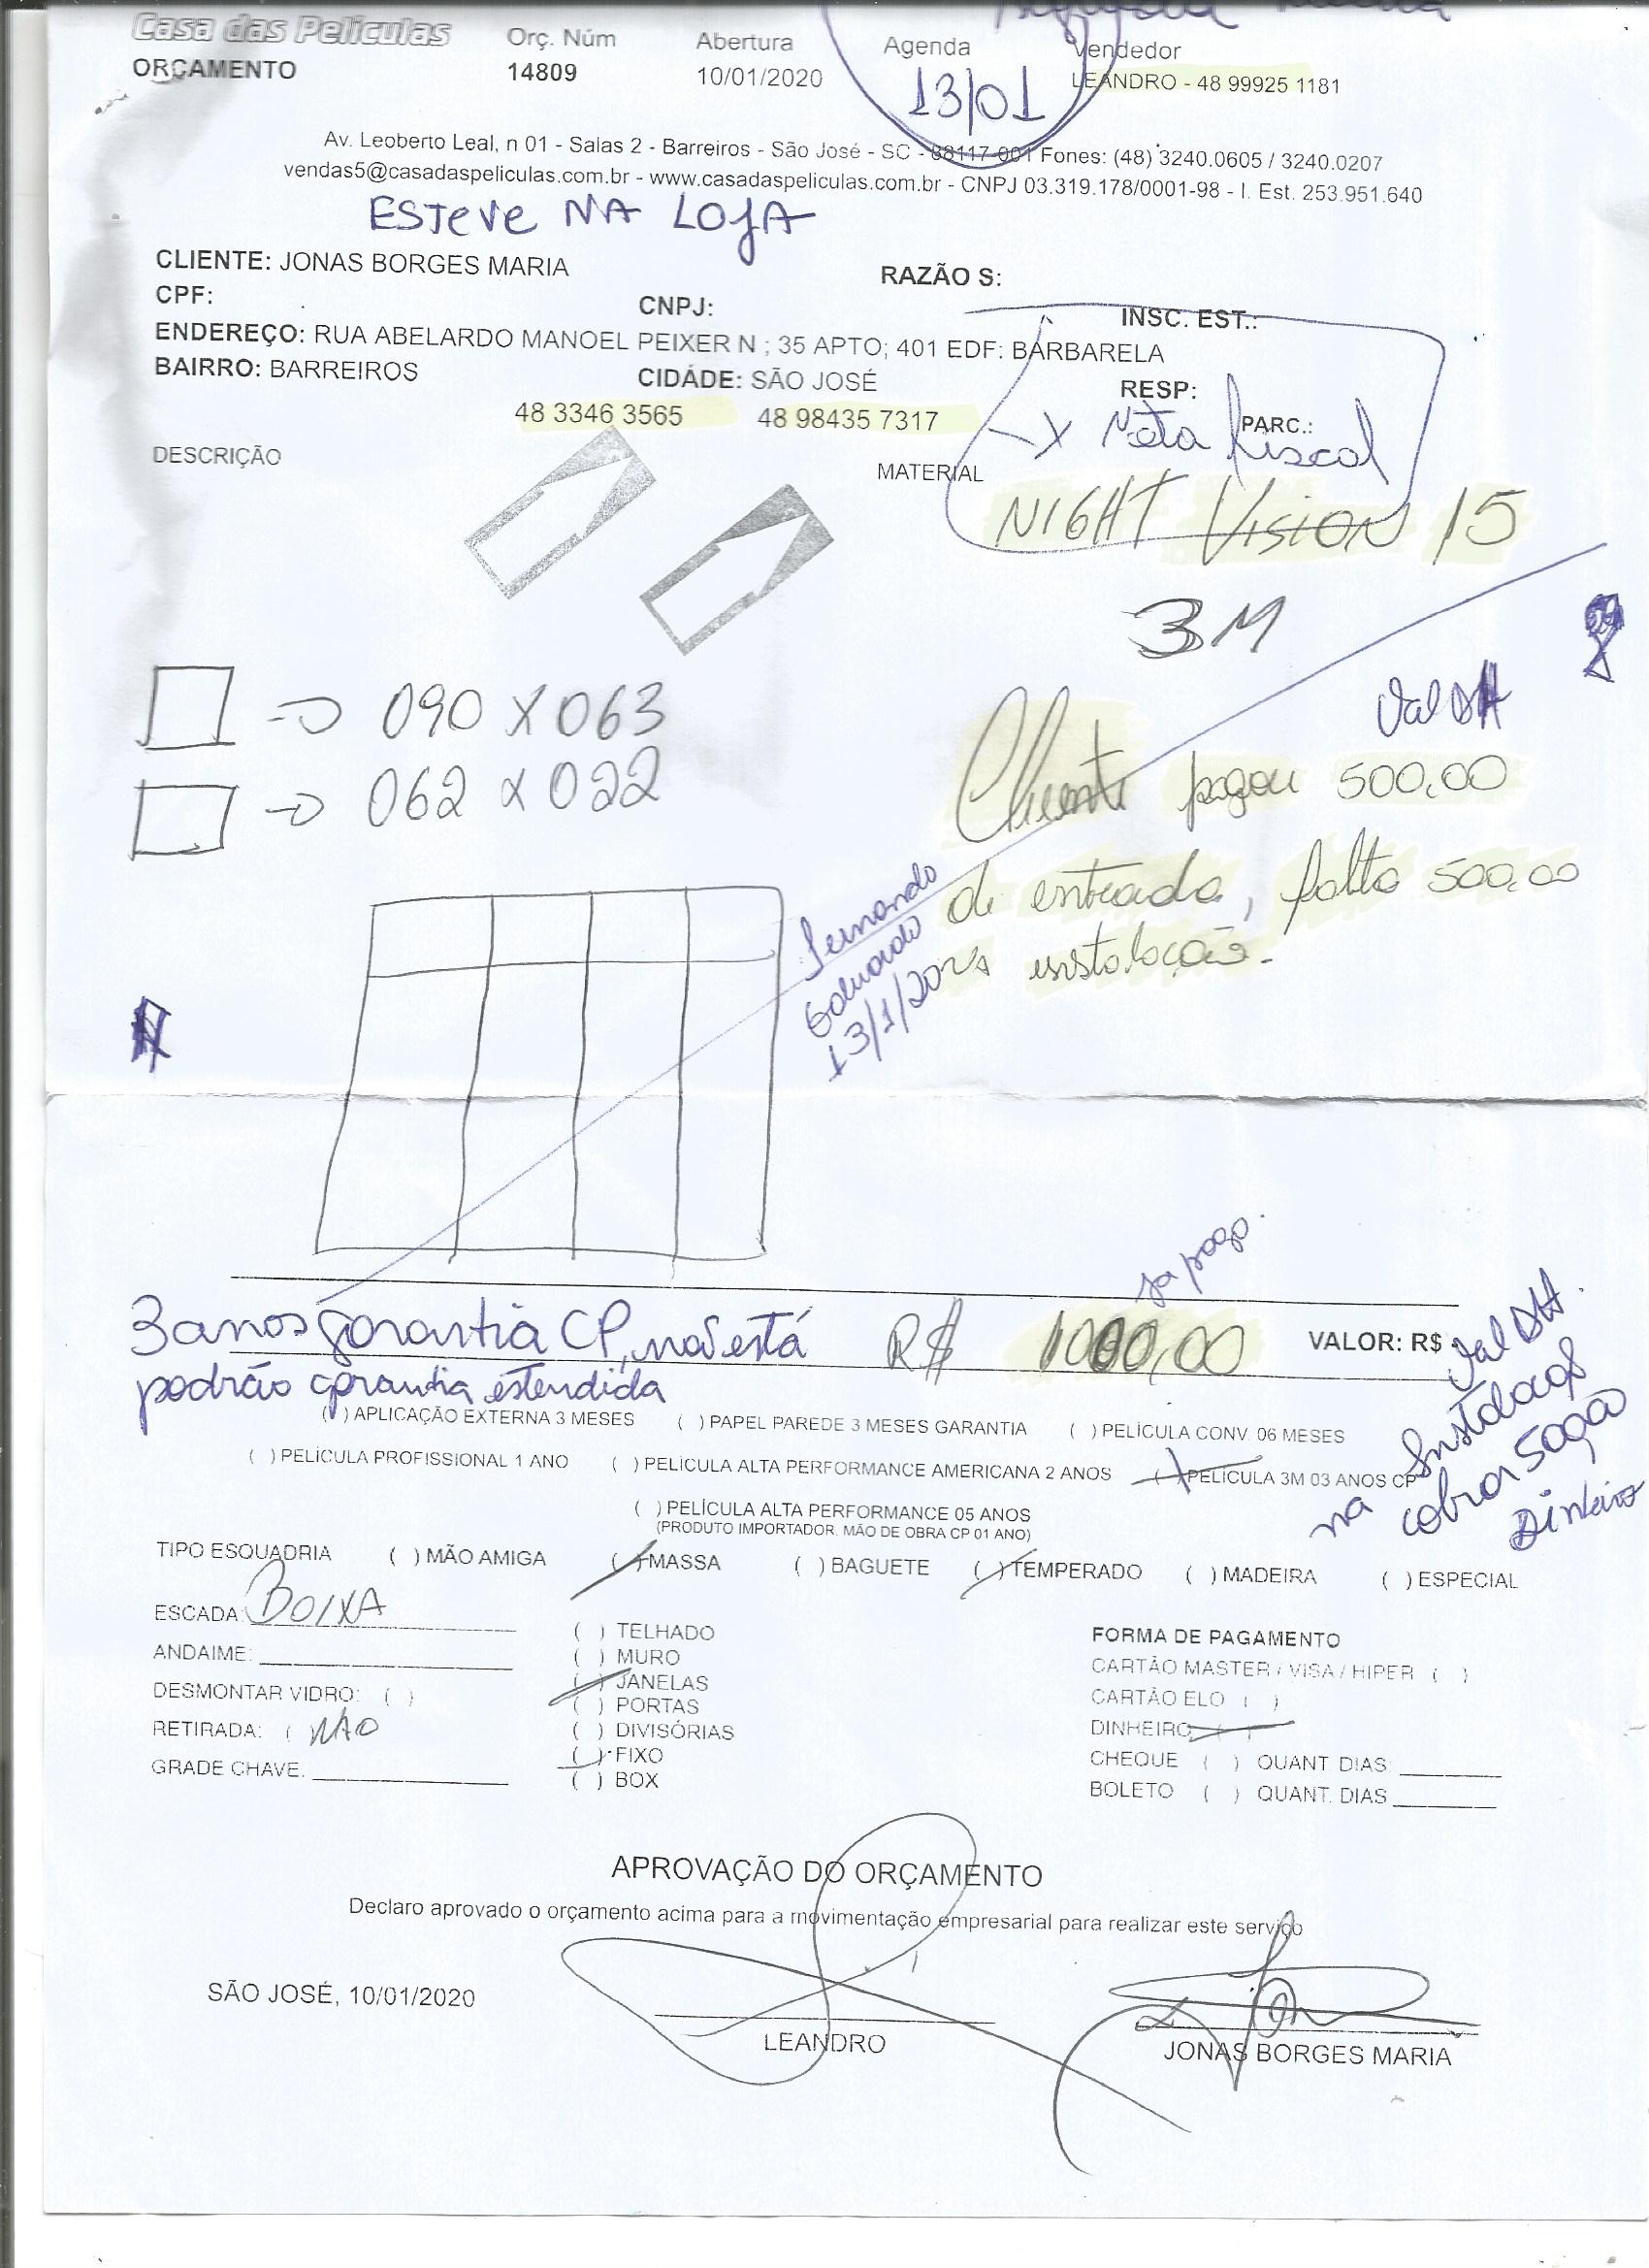 Casa das Películas
ORÇAMENTO
Orç. Núm
14809
Abertura
10/01/2020
Agenda
13/01
Vendedor
LEANDRO - 48 99925 1181
Av. Leoberto Leal, n 01 - Salas 2 - Barreiros - São José - SC - 88117-001 Fones: (48) 3240.0605 / 3240.0207
vendas5@casadaspeliculas.com.br - www.casadaspeliculas.com.br - CNPJ 03.319.178/0001-98 - I. Est. 253.951.640
ESTEVE NA LOJA
CLIENTE: JONAS BORGES MARIA
RAZÃO S:
CPF:
CNPJ:
INSC. EST.:
ENDEREÇO: RUA ABELARDO MANOEL PEIXER N ; 35 APTO; 401 EDF: BARBARELA
BAIRRO: BARREIROS
CIDADE: SÃO JOSÉ
RESP:
48 3346 3565 48 98435 7317
PARC.:
X Nota fiscal
DESCRIÇÃO
MATERIAL
NIGHT VISION 15
3M
090 X 063
062 X 022
Cliente pagou 500,00
de entrada, falta 500,00
instalação.
Fernando
Eduardo
13/1/20
Ja pago.
3 anos garantia CP, não está
padrão garantia estendida
R$ 1000,00
VALOR: R$
na Instalação
cobrar 500,00
Dinheiro
( ) APLICAÇÃO EXTERNA 3 MESES ( ) PAPEL PAREDE 3 MESES GARANTIA ( ) PELÍCULA CONV. 06 MESES
( ) PELÍCULA PROFISSIONAL 1 ANO ( ) PELÍCULA ALTA PERFORMANCE AMERICANA 2 ANOS ( ) PELÍCULA 3M 03 ANOS CP
( ) PELÍCULA ALTA PERFORMANCE 05 ANOS
(PRODUTO IMPORTADOR. MÃO DE OBRA CP 01 ANO)
TIPO ESQUADRIA ( ) MÃO AMIGA ( ) MASSA ( ) BAGUETE ( ) TEMPERADO ( ) MADEIRA ( ) ESPECIAL
ESCADA: BAIXA
ANDAIME:
DESMONTAR VIDRO: ( )
RETIRADA: ( NÃO
GRADE CHAVE:
( ) TELHADO
( ) MURO
( ) JANELAS
( ) PORTAS
( ) DIVISÓRIAS
( ) FIXO
( ) BOX
FORMA DE PAGAMENTO
CARTÃO MASTER / VISA / HIPER ( )
CARTÃO ELO ( )
DINHEIRO ( )
CHEQUE ( ) QUANT DIAS:
BOLETO ( ) QUANT. DIAS
APROVAÇÃO DO ORÇAMENTO
Declaro aprovado o orçamento acima para a movimentação empresarial para realizar este serviço
SÃO JOSÉ, 10/01/2020
LEANDRO
JONAS BORGES MARIA